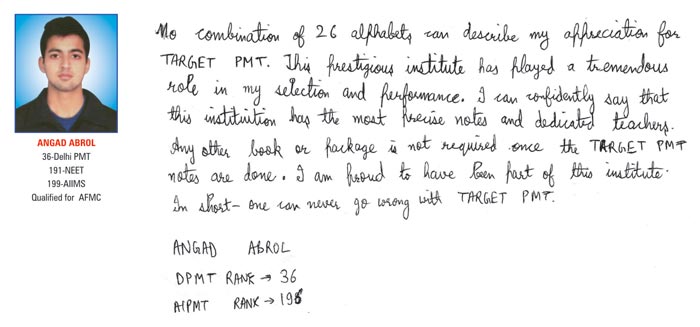 ANGAD ABROL
36-Delhi PMT
191-NEET
199-AIIMS
Qualified for AFMC
No combination of 26 alphabets can describe my appreciation for
TARGET PMT. This prestigious institute has played a tremendous
role in my selection and performance. I can confidently say that
this instituition has the most precise notes and dedicated teachers.
Any other book or package is not required once the TARGET PMT
notes are done. I am proud to have been part of this institute.
In short- one can never go wrong with TARGET PMT.
ANGAD ABROL
DPMT RANK → 36
AIPMT RANK → 198